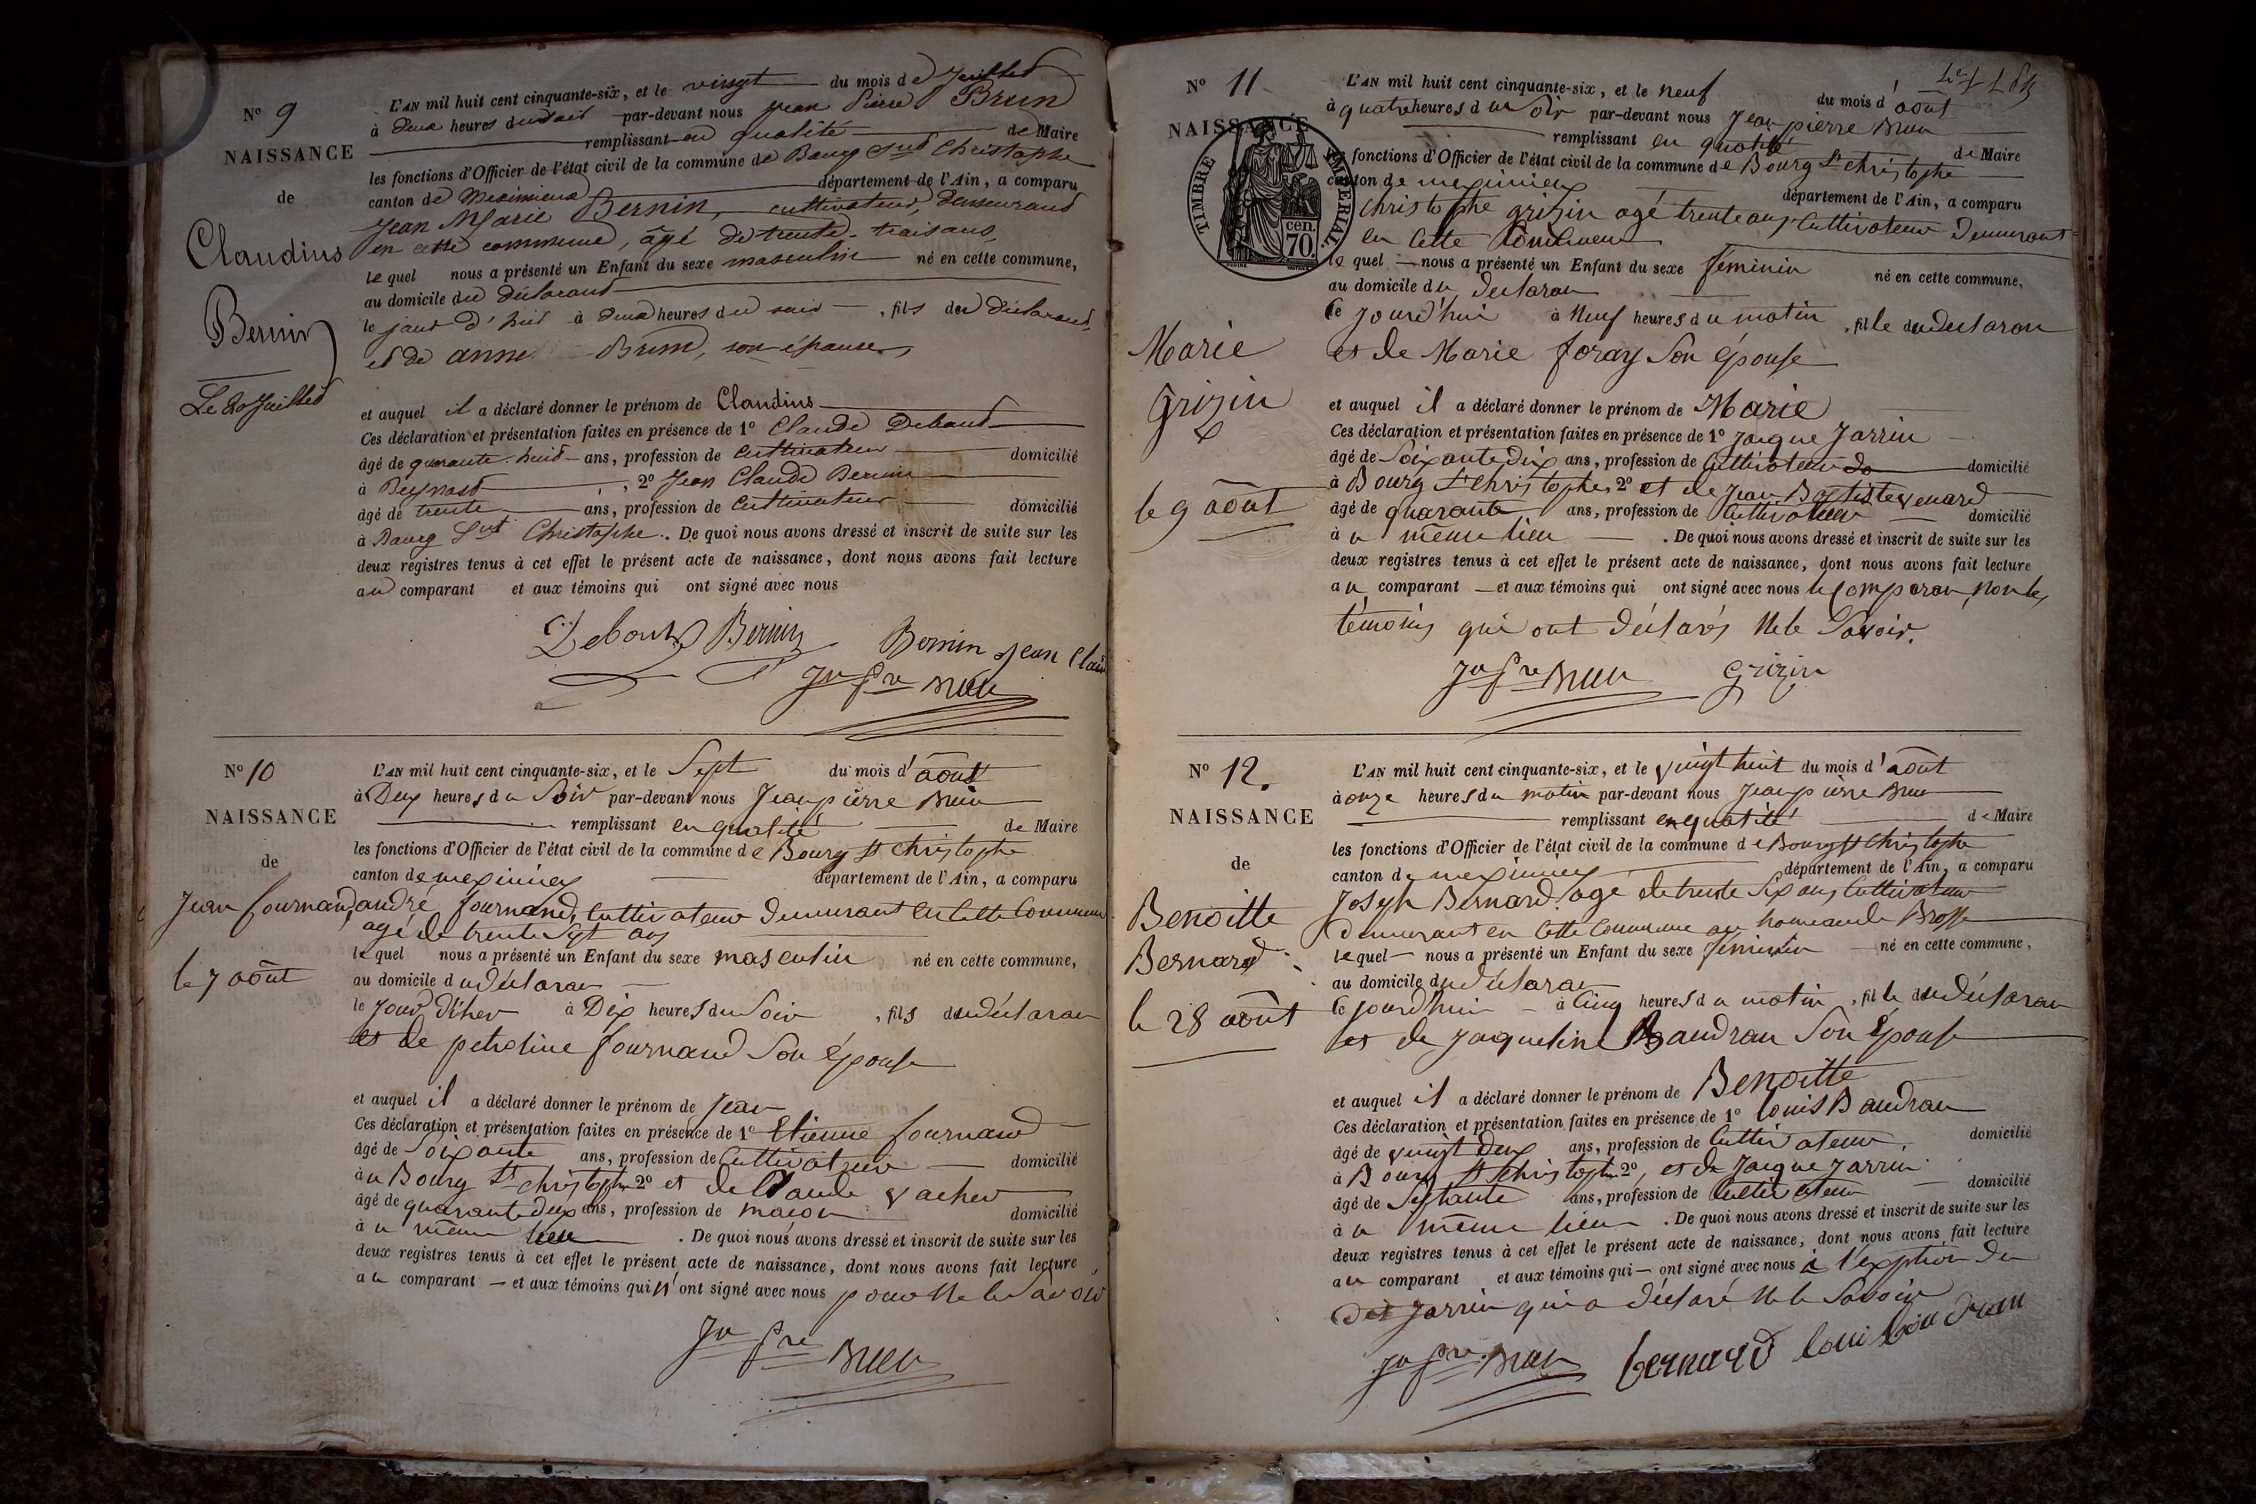 Nº 9
NAISSANCE
de
Claudius
Bernin
Le 20 Juillet
L'AN mil huit cent cinquante-six, et le vingt du mois de Juillet
à deux heures du soir par-devant nous Jean Pierre Brun
remplissant en qualité de Maire
les fonctions d'Officier de l'état civil de la commune de Bourg Snt Christophe
canton de Meximieux département de l'Ain, a comparu
Jean Marie Bernin, cultivateur, demeurant
en cette commune, âgé de trente-trois ans,
le quel nous a présenté un Enfant du sexe masculin né en cette commune,
au domicile du déclarant
le jour d'hui à deux heures du soir, fils du déclarant,
et de anne Brun, son épouse,
et auquel il a déclaré donner le prénom de Claudius
Ces déclaration et présentation faites en présence de 1º Claude Debout
âgé de quarante-huit ans, profession de cultivateur domicilié
à Beynost, 2º Jean Claude Bernin
âgé de trente ans, profession de cultivateur domicilié
à Bourg Snt Christophe. De quoi nous avons dressé et inscrit de suite sur les
deux registres tenus à cet effet le présent acte de naissance, dont nous avons fait lecture
au comparant et aux témoins qui ont signé avec nous
Debout Bernin Bernin Jean Clau
Jn pre Brun
Nº 10
NAISSANCE
de
Jean fournand,
le 7 août
L'AN mil huit cent cinquante-six, et le Sept du mois d'août
à Deux heures du Soir par-devant nous Jean pierre Brun
remplissant en qualité de Maire
les fonctions d'Officier de l'état civil de la commune de Bourg St Christophe
canton de meximieux département de l'Ain, a comparu
andré fournand, Cultivateur Demeurant en Cette Commune
agé de trente Sept ans
le quel nous a présenté un Enfant du sexe masculin né en cette commune,
au domicile du déclaran
le jour d'hier à Dix heures du Soir, fils du déclaran
et de petroline fournand Son épouse
et auquel il a déclaré donner le prénom de Jean
Ces déclaration et présentation faites en présence de 1º Etienne fournand
âgé de Soixante ans, profession de Cultivateur domicilié
au Bourg St christophe 2º et de Claude vacher
âgé de quarante deux ans, profession de macon domicilié
à u même lieu. De quoi nous avons dressé et inscrit de suite sur les
deux registres tenus à cet effet le présent acte de naissance, dont nous avons fait lecture
au comparant — et aux témoins qui n'ont signé avec nous pour ne le Savoir
Jn pre Brun
Nº 11
NAISSANCE
TIMBRE IMPERIAL
70 cen.
Marie
Grizin
le 9 août
L'AN mil huit cent cinquante-six, et le neuf du mois d'août
à quatre heures du Soir par-devant nous Jean pierre Brun
remplissant en qualité de Maire
les fonctions d'Officier de l'état civil de la commune de Bourg St christophe
canton de meximieux département de l'Ain, a comparu
christophe grizin agé trente ans Cultivateur Demeurant
en Cette Commune
le quel — nous a présenté un Enfant du sexe féminin né en cette commune,
au domicile du declaran
Ce Jourd'hui à Neuf heures du matin, fille du declaran
et de Marie foray Son épouse
et auquel il a déclaré donner le prénom de Marie
Ces déclaration et présentation faites en présence de 1º Jacque Jarrin
âgé de Soixante dix ans, profession de Cultivateur domicilié
à Bourg St christophe, 2º et de Jean Baptiste venard
âgé de quarante ans, profession de Cultivateur domicilié
à u même lieu. De quoi nous avons dressé et inscrit de suite sur les
deux registres tenus à cet effet le présent acte de naissance, dont nous avons fait lecture
au comparant — et aux témoins qui ont signé avec nous le Comparan, Non les
témoins qui ont déclarés Ne le Savoir.
Jn pre Brun Grizin
Nº 12.
NAISSANCE
de
Benoitte
Bernard
le 28 août
L'AN mil huit cent cinquante-six, et le vingt huit du mois d'août
à onze heures du matin par-devant nous Jean pierre Brun
remplissant en qualité de Maire
les fonctions d'Officier de l'état civil de la commune de Bourg St Christophe
canton de meximieux département de l'Ain, a comparu
Joseph Bernard agé de trente Six ans, Cultivateur
Demeurant en Cette Commune au hameau de Brosse
le quel — nous a présenté un Enfant du sexe féminin né en cette commune,
au domicile du déclaran
Ce jourd'hui à Cinq heures du matin, fille du déclaran
et de Jaqueline Baudran Son Epouse
et auquel il a déclaré donner le prénom de Benoitte
Ces déclaration et présentation faites en présence de 1º louis Baudran
âgé de vingt deux ans, profession de Cultivateur domicilié
à Bourg St christophe 2º, et de Jacque Jarrin
âgé de Septante ans, profession de Cultivateur domicilié
à u même lieu. De quoi nous avons dressé et inscrit de suite sur les
deux registres tenus à cet effet le présent acte de naissance, dont nous avons fait lecture
au comparant et aux témoins qui — ont signé avec nous à l'exption du
Dit Jarrin qui a déclaré Ne le Savoir
Jn pre Brun bernard loui baudran